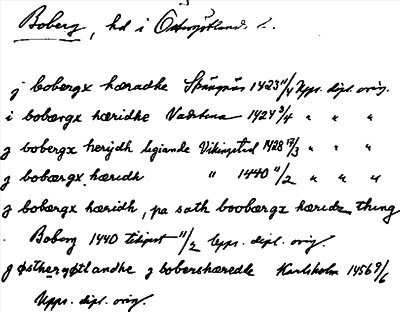 Boberg, hd i Östergötlands l.
j bobergx hæradhe Spångnäs 1423 11/4 Upps. dipl. orig.
i bobærgx hæridhe Vadstena 1424 3/4 " " "
j bobergx herijdh legiande Vikingstad 1428 17/3 " " "
j bobærgx hæridh " 1440 11/2 " " "
j bobærgx hæridh, pa sath boobærgx hæridz thing
Boberg 1440 11/2 Upps. dipl. orig.
j østhergøtlandhe j bobershæredhe Karlsholm 1456 9/6
Upps. dipl. orig.